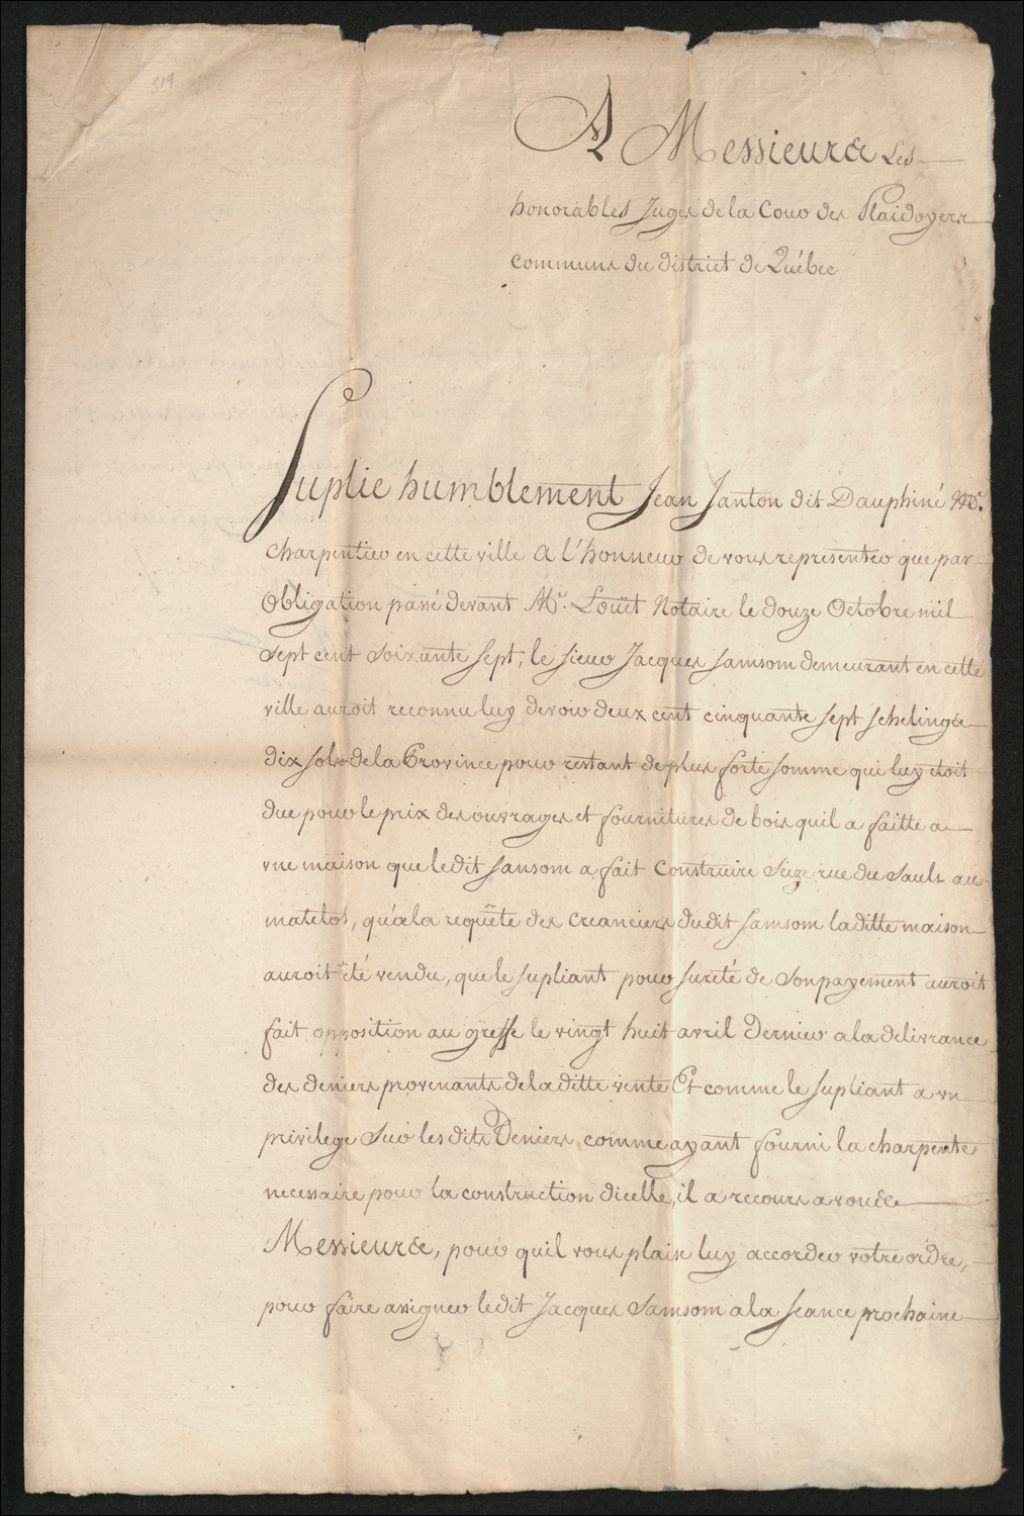 519
A Messieurs Les
honorables Juges de la Cour des Plaidoyers
communs du district de Québec
Suplie humblement Jean Janton dit Dauphiné Me.
charpentier en cette ville a l'honneur de vous representer que par
Obligation passé devant Mr. Loüet Notaire le douze Octobre mil
sept cent soixante sept, le sieur Jacques Samsom demeurant en cette
ville auroit reconnu luy devoir deux cent cinquante sept schelings
dix sols de la Province pour restant de plus forte somme qui luy etoit
due pour le prix des ouvrages et fournitures de bois quil a faitte a
vne maison que ledit Sansom a fait Construire Size rue du Sault au
matelot, qu'a la requête des creanciers dudit Samsom laditte maison
auroit été vendu, que le supliant pour sureté de Son payement auroit
fait opposition au greffe le vingt huit avril Dernier a la delivrance
des deniers provenants de la ditte vente Et comme le supliant a vn
privilege Sur les dits Deniers comme ayant fourni la charpente
necessaire pour la construction dicelle, il a recours a vous
Messieurs, pour quil vous plaise luy accorder votre ordre,
pour faire assigner ledit Jacques Samsom a la seance prochaine